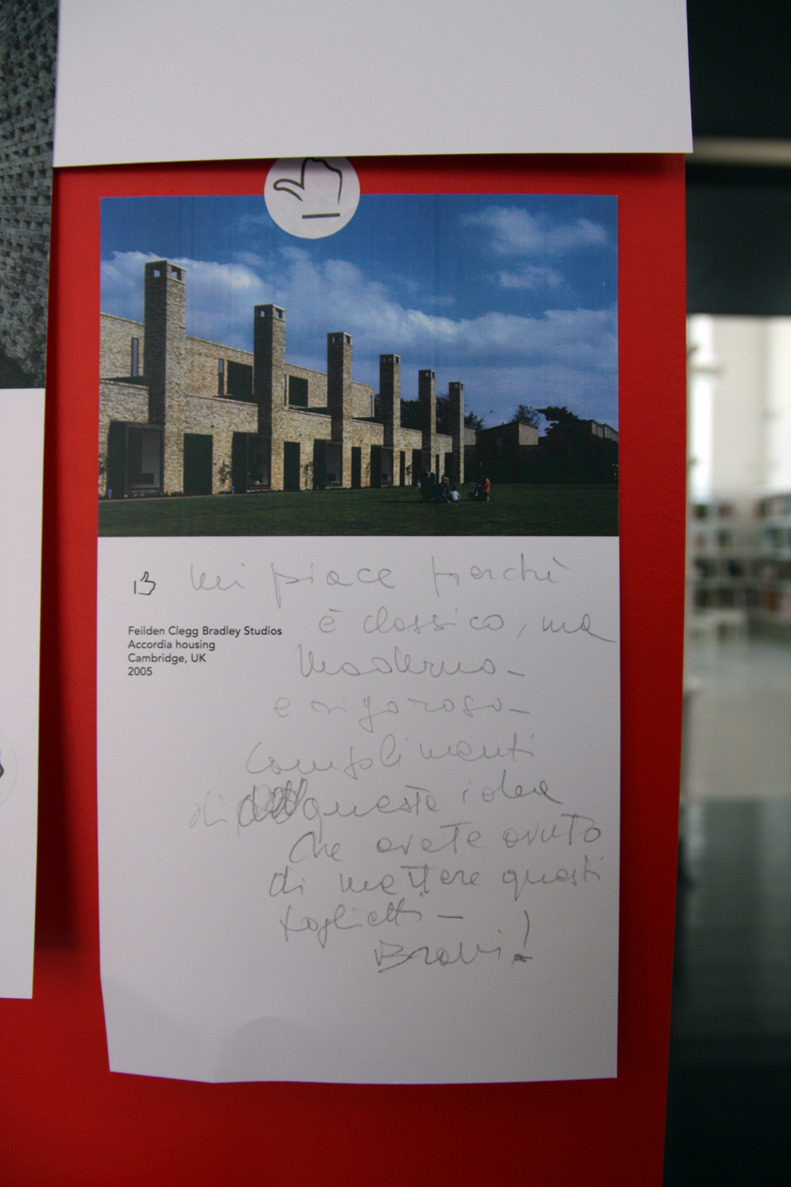 Mi piace perchè
è classico, ma
Feilden Clegg Bradley Studios
Accordia housing
Cambridge, UK
2005
moderno -
e rigoroso -
Complimenti
di questa idea
che avete avuto
di mettere questi
foglietti -
Bravi!